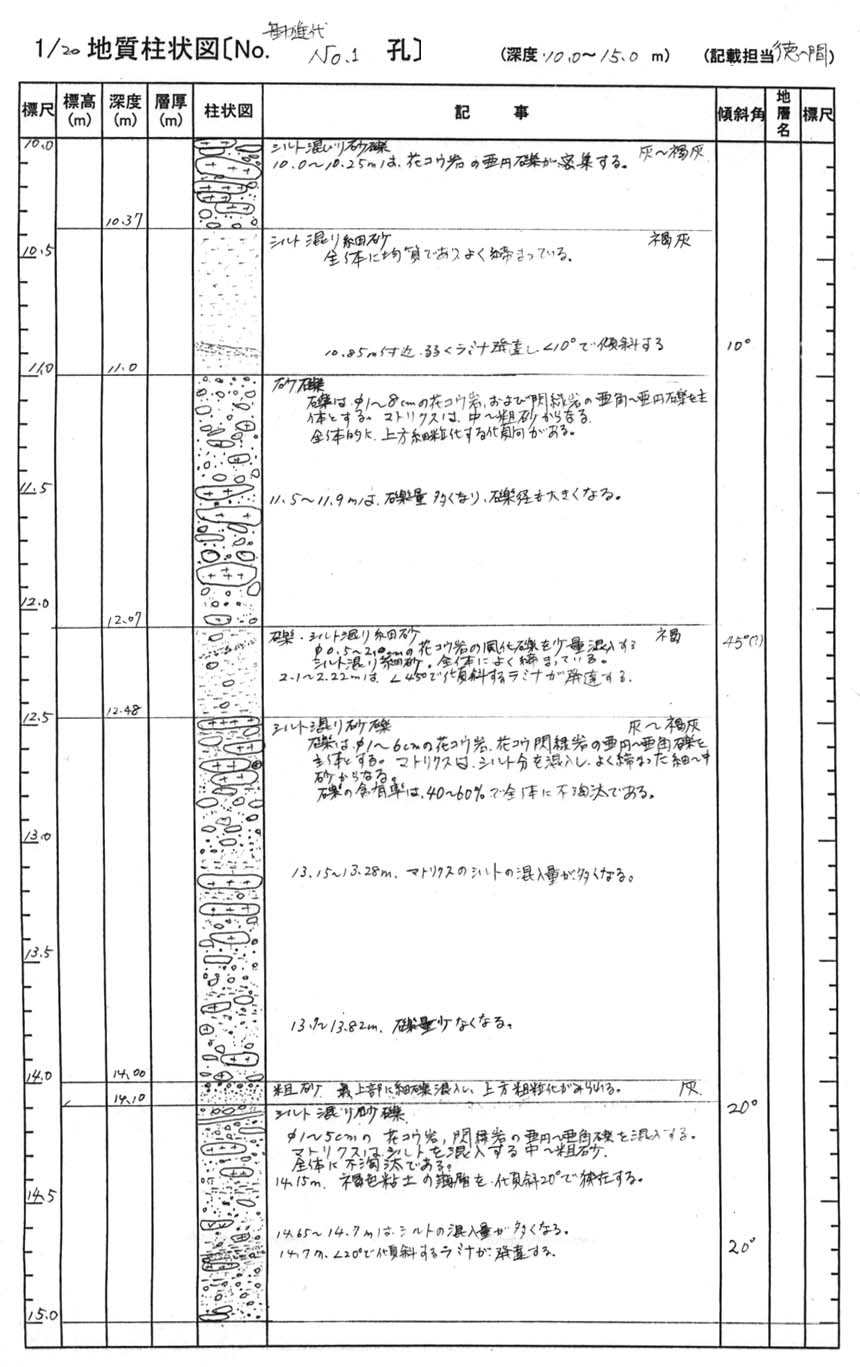 1/20 地質柱状図〔No. No.1 孔〕 (深度 10.0～15.0 m) (記載担当 徳間)
標尺 標高(m) 深度(m) 層厚(m) 柱状図 記事 傾斜角 地層名 標尺
10.0
シルト混じり砂礫 灰～褐灰
10.0～10.25mは、花コウ岩の亜円礫が密集する。
10.37
シルト混り細砂 褐灰
10.5
全体に均質でありよく締まっている。
10.85m付近、弱くラミナ発達し∠10°で傾斜する 10°
11.0 11.0
砂礫
礫は、φ1～8cmの花コウ岩、および閃緑岩の亜角～亜円礫を主
体とする。マトリクスは、中～粗砂からなる
全体的に、上方細粒化する傾向がある。
11.5
11.5～11.9mは、礫量多くなり、礫径も大きくなる。
12.0 12.07
礫・シルト混り細砂 褐 45°(?)
φ0.5～2.0cmの花コウ岩の風化礫を少量混入する
シルト混り細砂。全体によく締まっている。
2.1～2.22mは、∠45°で傾斜するラミナが発達する。
12.5 12.48
シルト混り砂礫 灰～褐灰
礫は、φ1～6cmの花コウ岩、花コウ閃緑岩の亜円～亜角礫を
主体とする。マトリクスは、シルト分を混入し、よく締まった細～中
砂からなる。
礫の含有率は、40～60%で全体に不淘汰である。
13.0
13.15～13.28m、マトリクスのシルトの混入量が多くなる。
13.5
13.7～13.82m、礫量少なくなる。
14.0 14.00
粗砂 最上部に細礫混入し、上方粗粒化がみられる。 灰
14.10
シルト混じり砂礫 20°
φ1～5cmの花コウ岩、閃緑岩の亜円～亜角礫を混入する。
マトリクスはシルトを混入する中～粗砂。
全体に不淘汰である。
14.15m、褐色粘土の薄層を、傾斜20°で挟在する。
14.5
14.65～14.7mは、シルトの混入量が多くなる。
14.7m、∠20°で傾斜するラミナが発達する。 20°
15.0